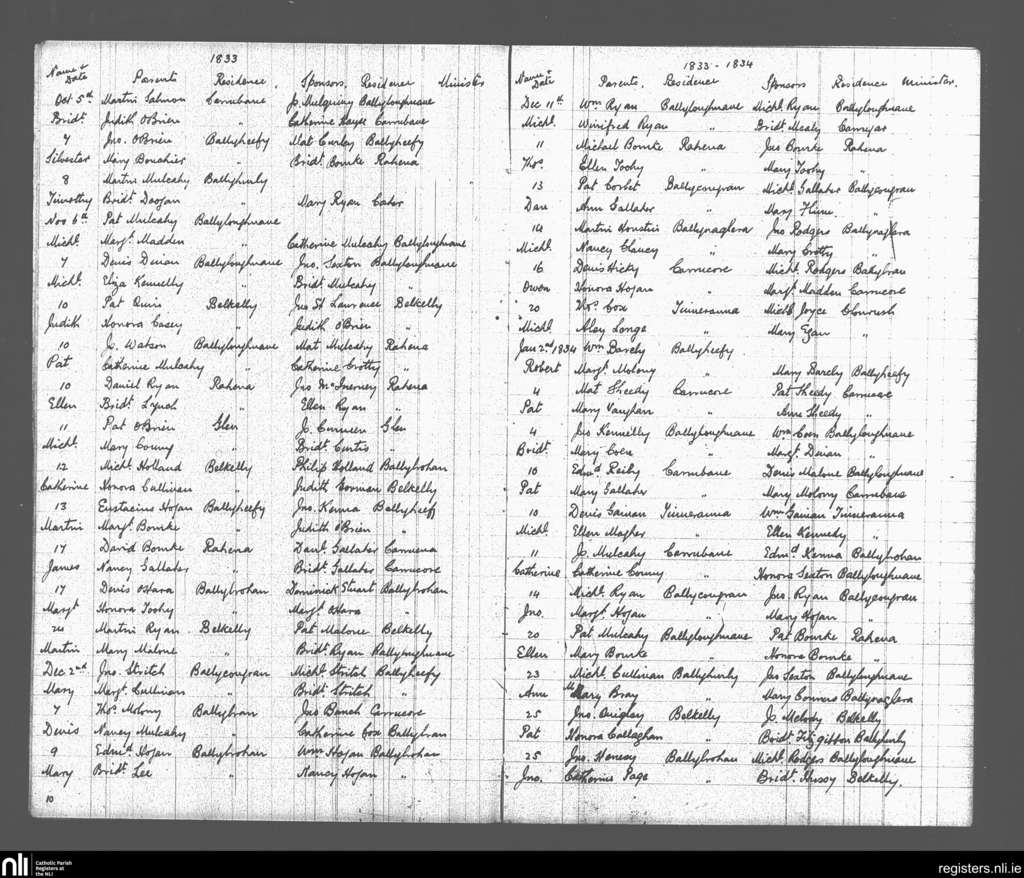 1833
Name & Date Parents Residence. Sponsors, Residence Minister
Oct 5th Martin Salmon Carnubane J. Mulqueiny Ballyloughnane
Bridt. Judith O'Brien " Catherine Hayes Carnubane
7 Jno. O'Brien Ballyheefy Mat Curley Ballyheefy
Silvester Mary Bouchier " Bridt. Bourke Rahena
8 Martin Mulcahy Ballyhurly
Timothy Bridt. Doogan " Mary Ryan
Nov 6th Pat Mulcahy Ballyloughnane
Michl. Margt. Madden " Catherine Mulcahy Ballyloughnane
7 Denis Ballyloughnane Jno. Sexton Ballyloughnane
Michl. Eliza Kennelly " Bridt Mulcahy "
10 Pat Quin Belkelly Jno St Lawrence Belkelly
Judith Honora Casey " Judith O'Brien "
10 J. Watson Ballyloughnane Mat Mulcahy Rahena
Pat Catherine Mulcahy " Catherine Crotty "
10 Daniel Ryan Rahena Jno McInerney Rahena
Ellen Bridt. Lynch " Ellen Ryan "
11 Pat O'Brien Glen J. Glen
Michl. Mary " Bridt. Curtis "
12 Michl. Holland Belkelly Philip Holland Ballybrohan
Catherine Honora Cullinan " Judith Gorman Belkelly
13 Eustacius Hogan Ballyheefy Jno. Kenna Ballyheefy
Martin Margt. Bourke " Judith O'Brien "
17 David Bourke Rahena Danl. Gallaher
James Nancy Gallaher " Bridt. Gallaher Carnucore
17 Denis O'Hara Ballybrohan Dominick Stuart Ballybrohan
Margt. Honora Toohy " Margt. O'Hara "
24 Martin Ryan Belkelly Pat Malone Belkelly
Martin Mary Malone " Bridt Ryan Ballyloughnane
Dec 2nd Jno. Stritch Ballycougran Michl. Stritch Ballyheefy
Mary Margt. Cullinan " Bridt. Stritch "
7 Thos. Molony Ballybran Jno Carnucore
Denis Nancy Mulcahy " Catherine Cox Ballybran
9 Edmd. Hogan Ballybrohan Wm Hogan Ballybrohan
Mary Bridt. Lee " Nancy Hogan "
10
1833 - 1834
Name & Date Parents, Residence Sponsors Residence Minister.
Dec 11th Wm Ryan Ballyloughnane Michl. Ryan Ballyloughnane
Michl. Winifred Ryan " Bridt. Mealy
11 Michael Bourke Rahena Jno Bourke Rahena
Thos. Ellen Toohy " Mary Toohy "
13 Pat Corbet Ballycougran Michl. Gallaher Ballycougran
Dan Ann Gallaher " Mary "
14 Martin Ballynaglera Jno Rodgers Ballynaglera
Michl. Nancy Clancy " Mary Crotty "
16 Denis Hicky Carnucore Michl. Rodgers Ballybran
Owen Honora Hogan " Margt. Madden Carnucore
20 Thos. Cox Tinneranna Michl Joyce
Michl. Aley Longe " Mary Egan "
Jan 2nd 1834 Wm Barcly Ballyheefy
Robert Margt. Molony " Mary Barcly Ballyheefy
4 Mat Sheedy Carnucore Pat Sheedy Carnucore
Pat Mary Vaughan " Ann Sheedy "
4 Jno Kennelly Ballyloughnane Wm Coen Ballyloughnane
Bridt. Mary Coen " Margt.
10 Edmd Reily Carnubane Denis Malone Ballyloughnane
Pat Mary Gallaher " Mary Molony Carnubane
10 Denis Tinneranna Wm Tinneranna
Michl. Ellen Magher " Ellen Kennedy "
11 J. Mulcahy Carnubane Edmd Kenna Ballybrohan
Catherine Catherine " Honora Sexton Ballyloughnane
14 Michl. Ryan Ballycougran Jno. Ryan Ballycougran
Jno. Margt. Hogan " Mary Hogan "
20 Pat Mulcahy Ballyloughnane Pat Bourke Rahena
Ellen Mary Bourke " Honora Bourke "
23 Michl Cullinan Ballyhurly Jas Sexton Ballyloughnane
Ann Mary Bray " Mary Connors Ballynaglera
25 Jno. Quigley Belkelly J. Melody Belkelly
Pat Honora Callaghan " Bridt Fitzgibbon Ballyhurly
25 Jno. Henesy Ballybrohan Michl. Rodgers Ballyloughnane
Jno. Catherine Page " Bridt. Hussy Belkelly.
nli Catholic Parish Registers at the NLI
registers.nli.ie